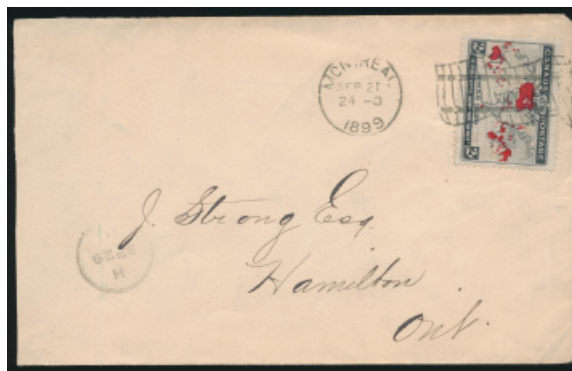 MONTREAL
SEP 21
24-0
1899
CANADA POSTAGE
J. Strong Esq.
Hamilton
Ont.